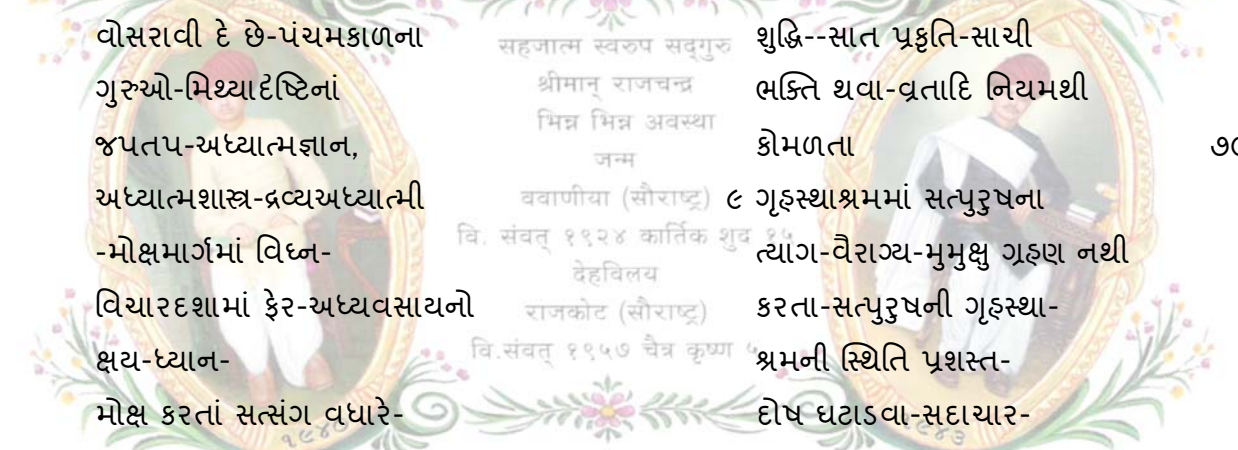 વોસરાવી દે છે-પંચમકાળના
ગુરુઓ-મિથ્યાદૅષ્ટિનાં
જપતપ-અધ્યાત્મજ્ઞાન,
અધ્યાત્મશાસ્ત્ર-દ્રવ્યઅધ્યાત્મી
-મોક્ષમાર્ગમાં વિઘ્ન-
વિચારદશામાં ફેર-અધ્યવસાયનો
ક્ષય-ધ્યાન-
મોક્ષ કરતાં સત્સંગ વધારે-
सहजात्म स्वरुप सद्गुरु
श्रीमान् राजचन्द्र
भिन्न भिन्न अवस्था
जन्म
ववाणीया (सौराष्ट्र)
वि. संवत् १९२४ कार्तिक शुद १५
देहविलय
राजकोट (सौराष्ट्र)
वि.संवत् १९५७ चैत्र कृष्ण ५
શુદ્ધિ--સાત પ્રકૃતિ-સાચી
ભક્તિ થવા-વ્રતાદિ નિયમથી
કોમળતા
૯ ગૃહસ્થાશ્રમમાં સત્પુરુષના
ત્યાગ-વૈરાગ્ય-મુમુક્ષુ ગ્રહણ નથી
કરતા-સત્પુરુષની ગૃહસ્થા-
શ્રમની સ્થિતિ પ્રશસ્ત-
દોષ ઘટાડવા-સદાચાર-